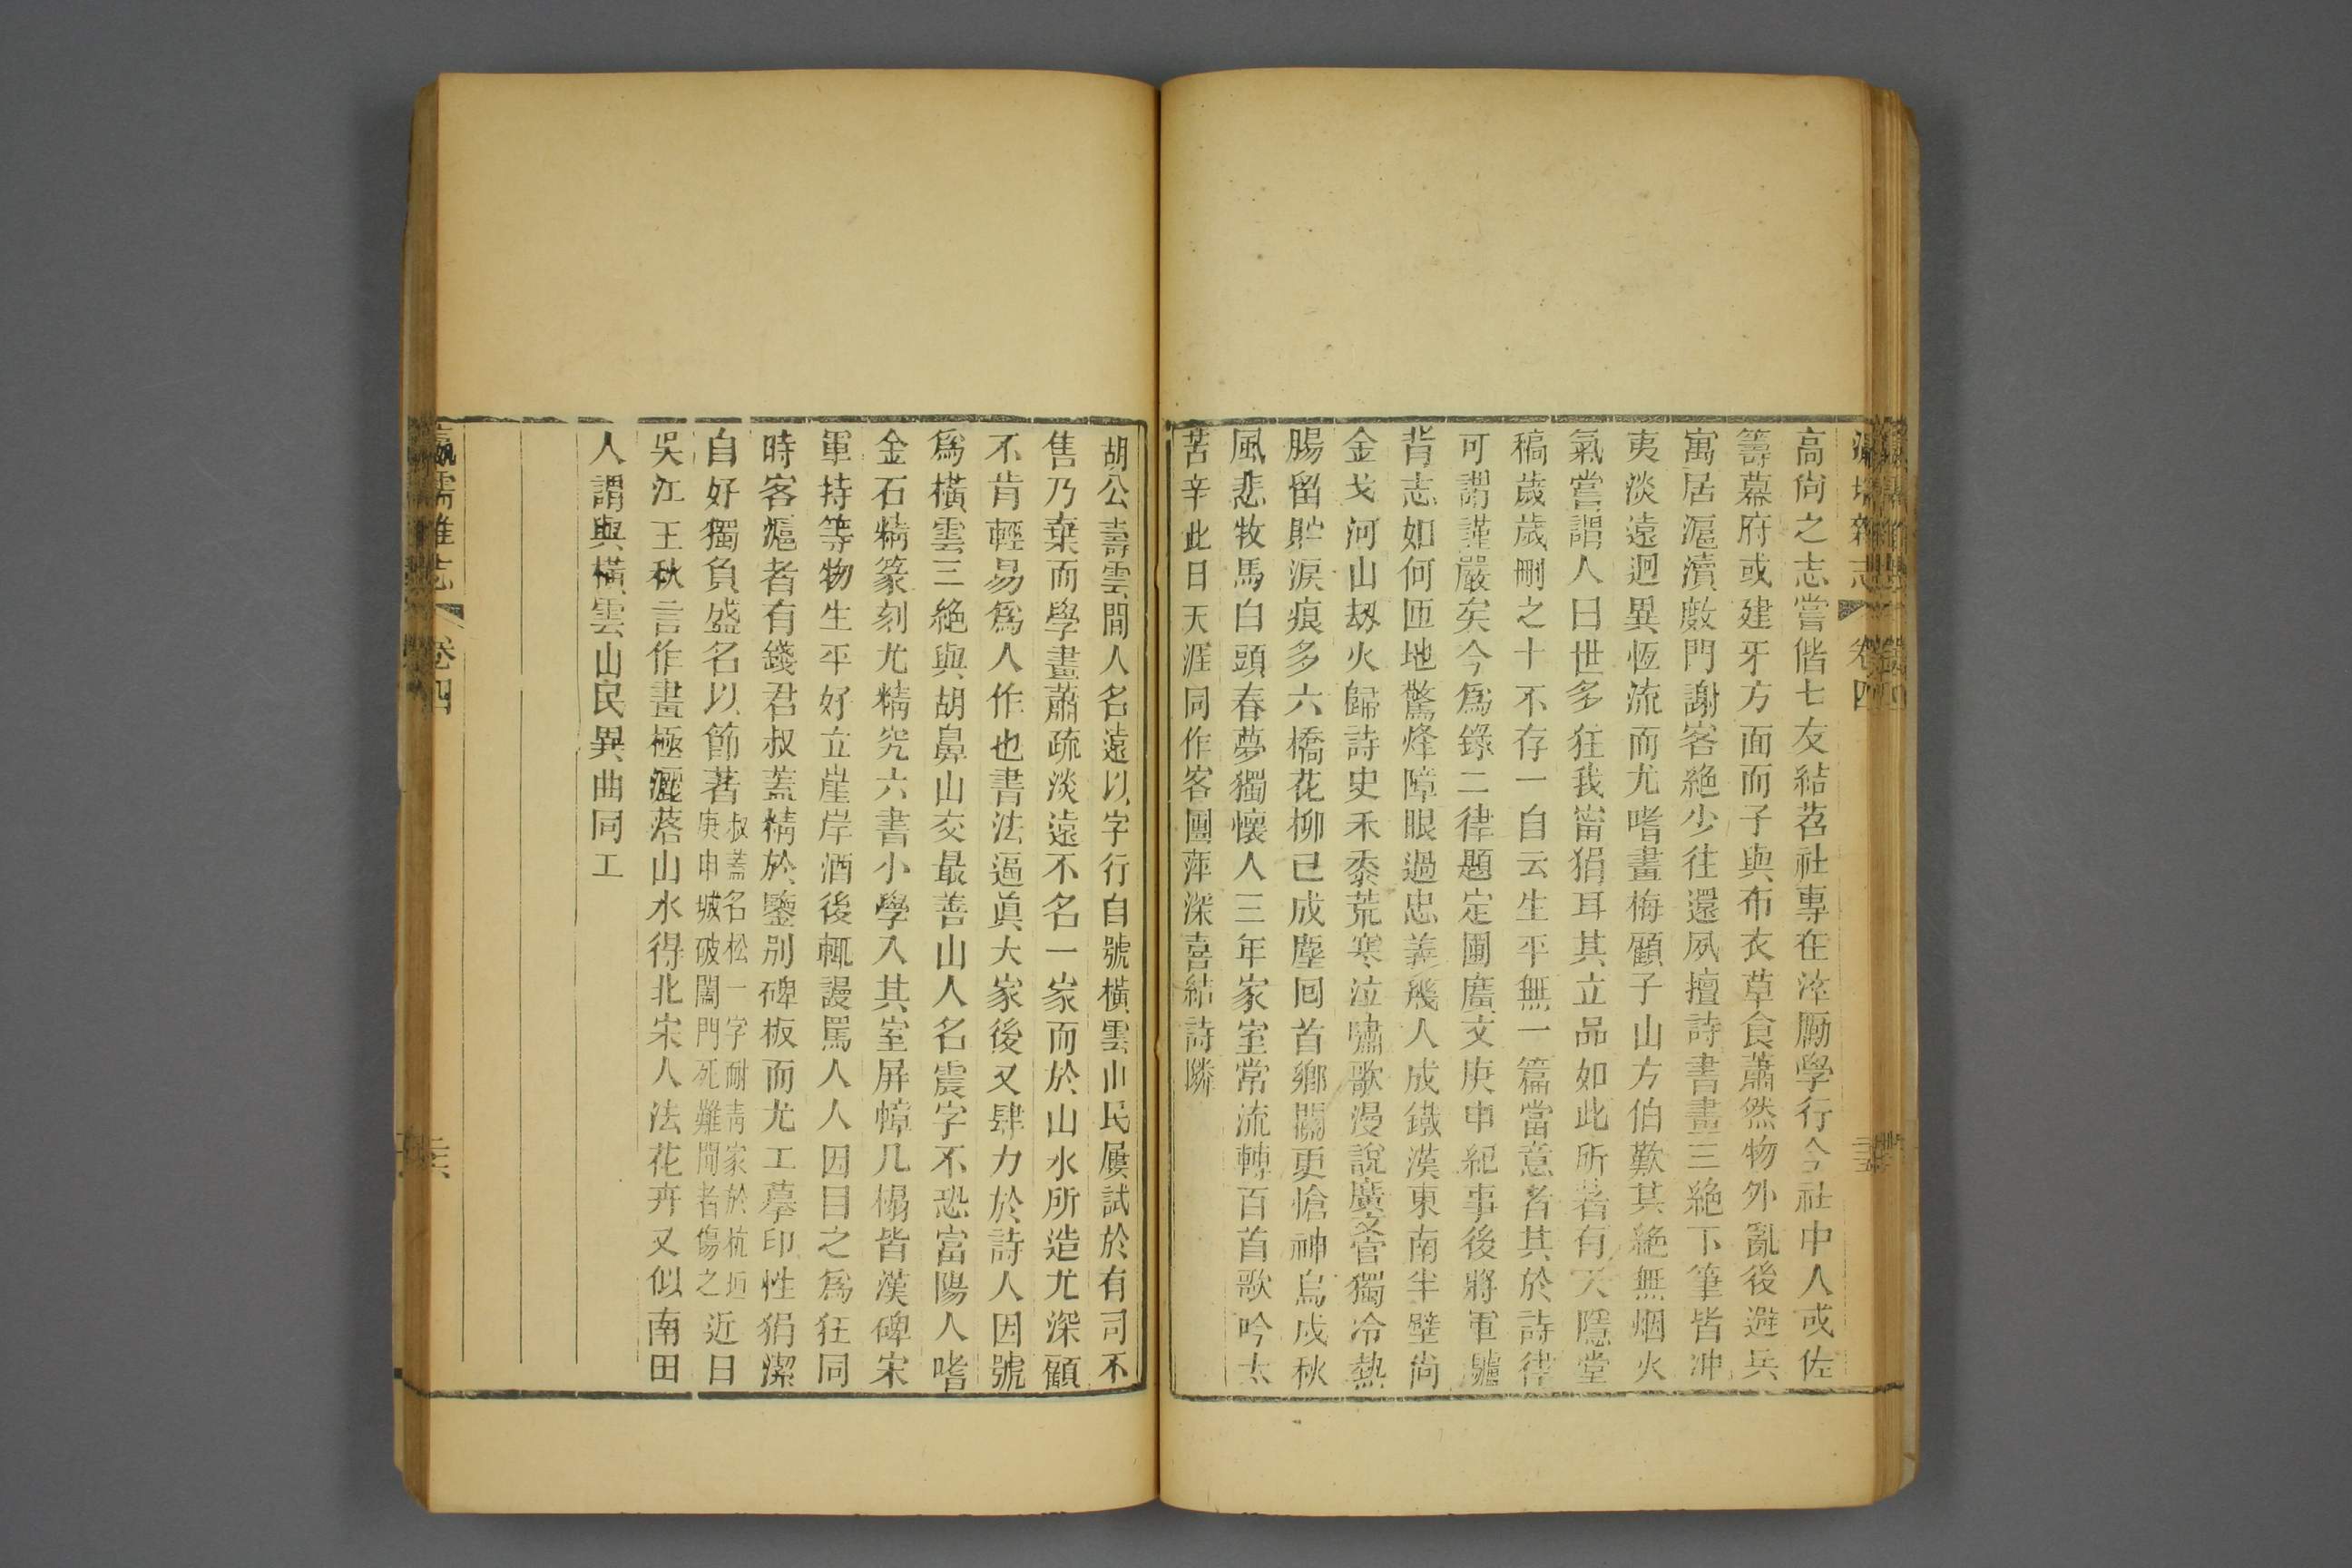 瀛壖雜志 卷四
高尙之志嘗偕七友結苕社專在淬勵學行今社中人或佐
籌幕府或建牙方面而子與布衣草食蕭然物外亂後避兵
寓居滬瀆敼門謝客絶少往還夙擅詩書畫三絶下筆皆冲
夷淡遠迥異恆流而尤嗜畫梅顧子山方伯歎其絶無烟火
氣嘗謂人曰世多狂我當狷耳其立品如此所著有天隱堂
稿歲歲刪之十不存一自云生平無一篇當意者其於詩律
可謂謹嚴矣今爲錄二律題定圃廣文庚申紀事後將軍
背志如何匝地驚烽障眼過忠義幾人成鐵漢東南半壁尙
金戈河山刼火歸詩史禾黍荒寒泣嘯歌漫說廣文官獨冷熱
腸留貯淚痕多六橋花柳已成塵回首鄉關更愴神烏戍秋
風悲牧馬白頭春夢獨懷人三年家室常流轉百首歌吟太
苦辛此日天涯同作客團萍深喜結詩隣
胡公壽雲間人名遠以字行自號橫雲山民屢試於有司不
售乃棄而學畫蕭疏淡遠不名一家而於山水所造尤深顧
不肯輕易爲人作也書法逼眞大家後又肆力於詩人因號
爲橫雲三絶與胡鼻山交最善山人名震字不恐富陽人嗜
金石精篆刻尤精究六書小學入其室屏幛几榻皆漢碑宋
軍持等物生平好立崖岸酒後輒謾罵人人因目之爲狂同
時客滬者有錢君叔蓋精於鑒別碑板而尤工摹印性狷潔
自好獨負盛名以節著叔蓋名松一字耐靑家於杭垣庚申城破闔門死難聞者傷之近日
吳江王秋言作畫極灑落山水得北宋人法花卉又似南田
人謂與橫雲山民異曲同工
瀛壖雜志 卷四